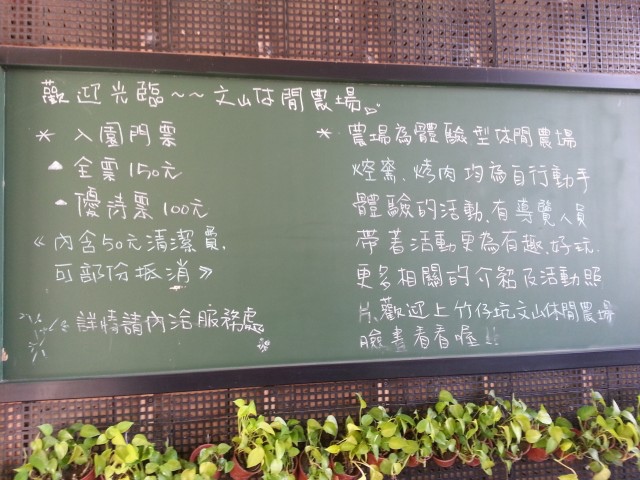 歡迎光臨~~文山休閒農場
* 入園門票
全票150元
優待票100元
《內含50元清潔費,
可部份抵消》
詳情請內洽服務處
* 農場為體驗型休閒農場
焢窯、烤肉均為自行動手
體驗的活動,有導覽人員
帶著活動更為有趣、好玩.
更多相關的介紹及活動照
片、歡迎上竹仔坑文山休閒農場
臉書看看喔!!